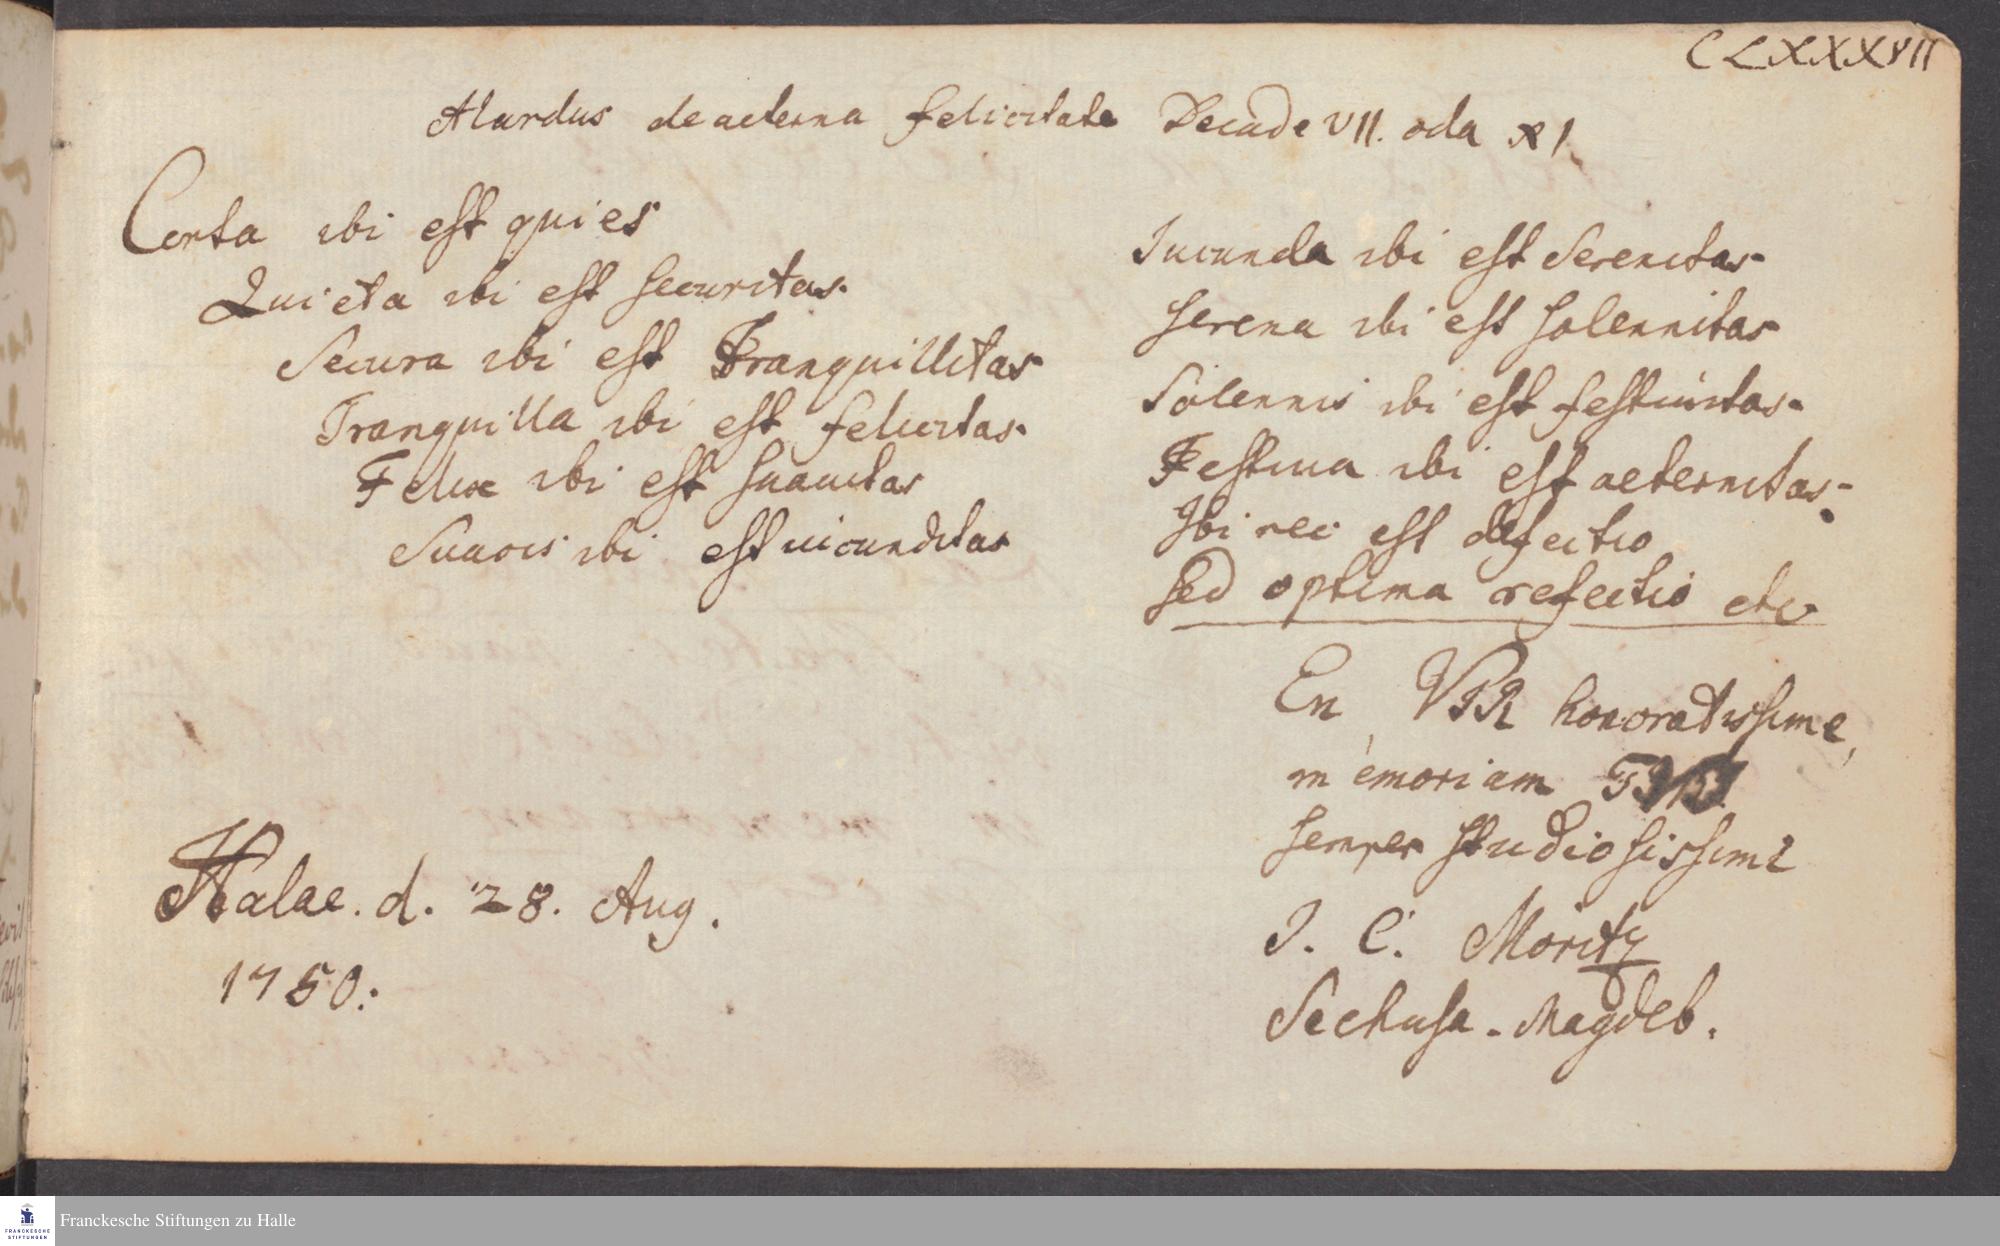 CLXXXVII
Alardus de aeterna felicitate Decade VII. oda XI.
Certa ibi est quies
Quieta ibi est securitas.
Secura ibi est Tranquillitas
Tranquilla ibi est felicitas.
Felix ibi est suauitas
Suavis ibi est iucunditas
Iucunda ibi est Serenitas
serena ibi est solennitas
Solennis ibi est festiuitas.
Festiua ibi est aeternitas.
Ibi nec est defectio
sed optima refectio etc
En VIR honoratissime,
memoriam
semper studiosissimi
I. C. Moritz
Seehusa-Magdeb.
Halae. d. 28. Aug.
1750.
Franckesche Stiftungen zu Halle
FRANCKESCHE
STIFTUNGEN